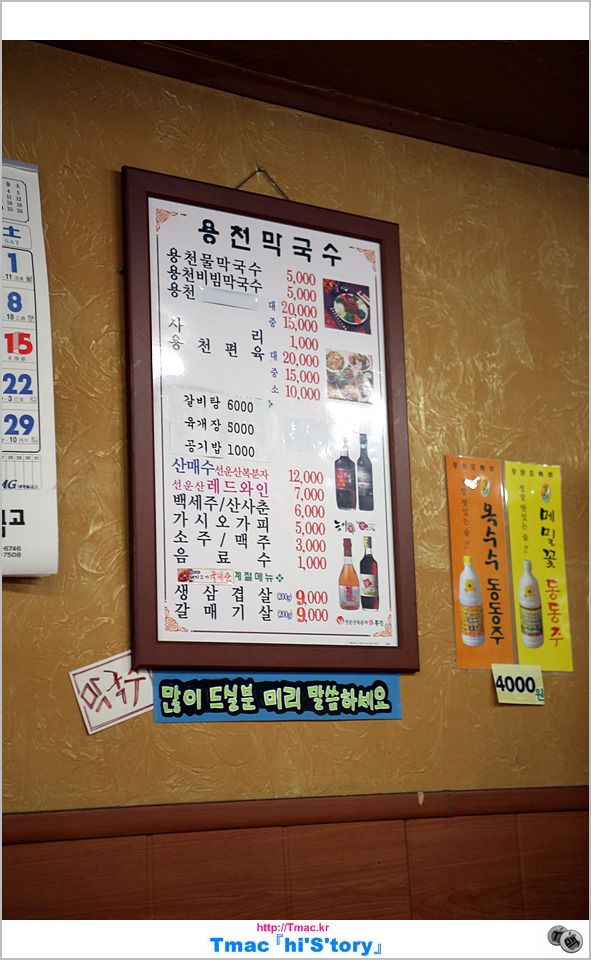 土
SAT
1
8
15
22
29
용천막국수
용천물막국수 5,000
용천비빔막국수 5,000
용천 대 20,000
중 15,000
사리 1,000
용천편육 대 20,000
중 15,000
소 10,000
갈비탕 6000
육개장 5000
공기밥 1000
산매수 선운산복분자 12,000
선운산 레드와인 7,000
백세주/산사춘 6,000
가시오가피 5,000
소주/맥주 3,000
음료수 1,000
국내산 계절메뉴
생삼겹살 (200g) 9,000
갈매기살 (200g) 9,000
막국수
많이 드실분 미리 말씀하세요
옥수수 동동주
메밀꽃 동동주
4000원
고
-6746
-7508
http://Tmac.kr
Tmac『hi'S'tory』